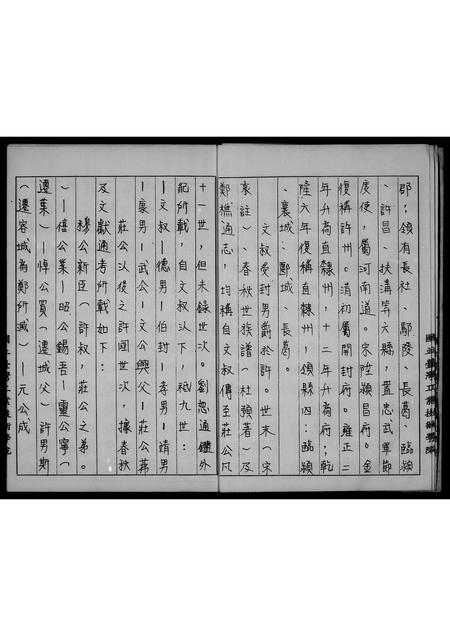 郡;領有長社、鄢陵、長葛、臨潁
、許昌、扶溝等六縣,置忠武軍節
度使,屬河南道。宋陞潁昌府。金
復稱許州。清初屬開封府。雍正二
年升為直隸州,十二年升為府;乾
隆六年復稱直隸州,領縣四:臨潁
、襄城、郾城、長葛。
文叔受封男爵於許。世末(宋
衷註)、春秋世族譜(杜預著)及
鄭樵通志,均稱自文叔傳至莊公凡
十一世,但未錄世次。劉恕通鑑外
紀所載,自文叔以下,祗九世:
|文叔|德男|伯封|孝男|靖男
|康男|武公|文公興父|莊公茀
莊公以後之許國世次,據春秋
及文獻通考所載如下:
穆公新臣(許叔,莊公之弟。
)|僖公業|昭公錫吾|靈公寧(
遷葉)|悼公買(遷城父)許男斯
(遷容城為鄭所滅)|元公成